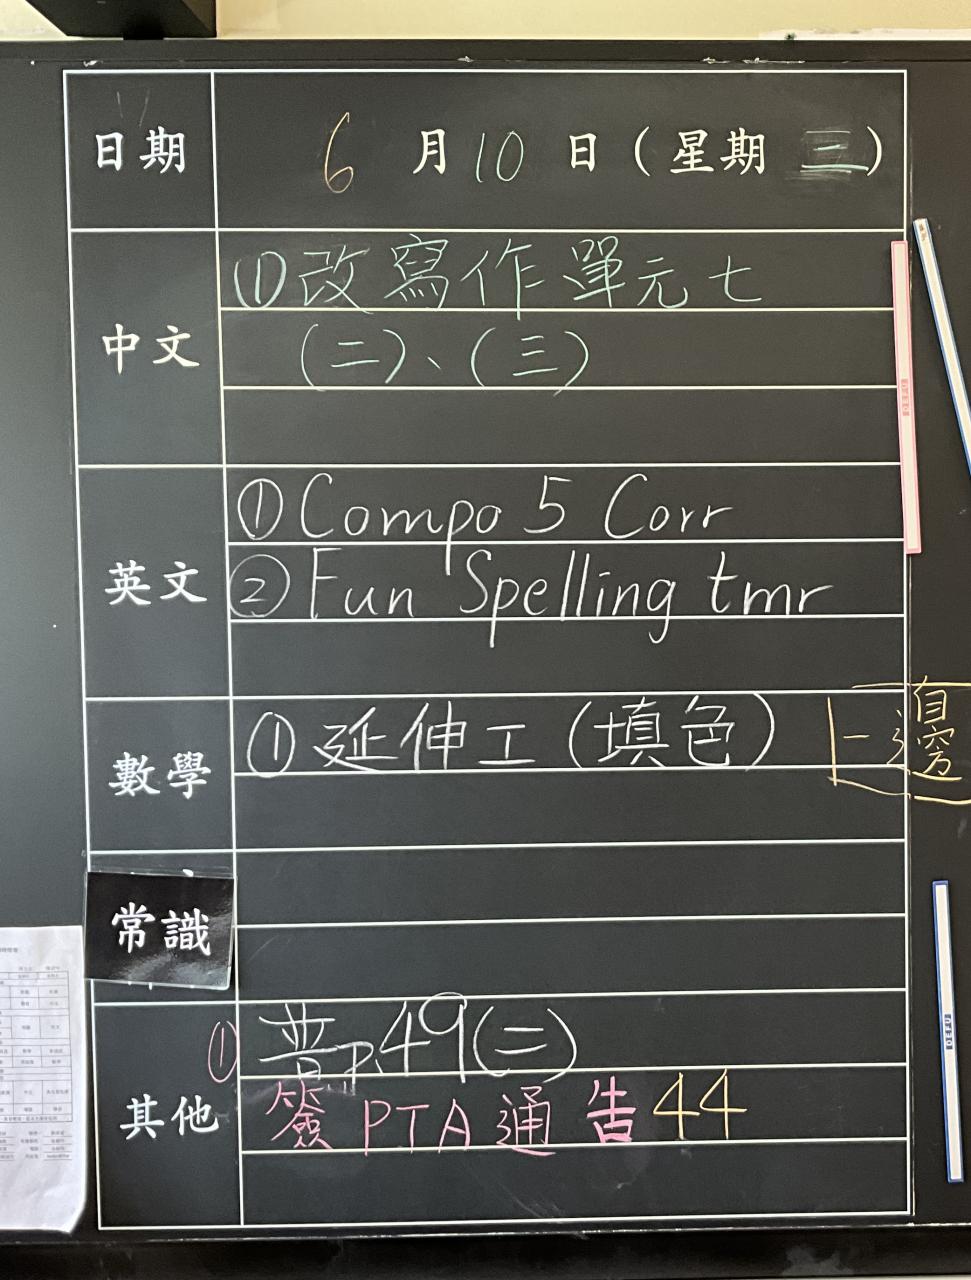 日期 6月10日(星期三)
中文 ①改寫作單元七
(二)、(三)
英文 ①Compo 5 Corr
②Fun Spelling tmr
數學 ①延伸工(填色)
一邊
常識
其他 ①普P.49(二)
簽PTA通告44